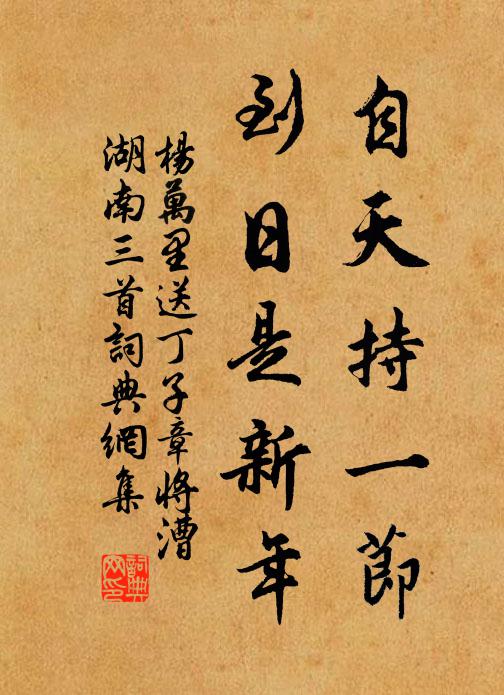 自天持一節
到日是新年
楊萬里送丁子章將漕
湖南三首詞典網集
詞典网印